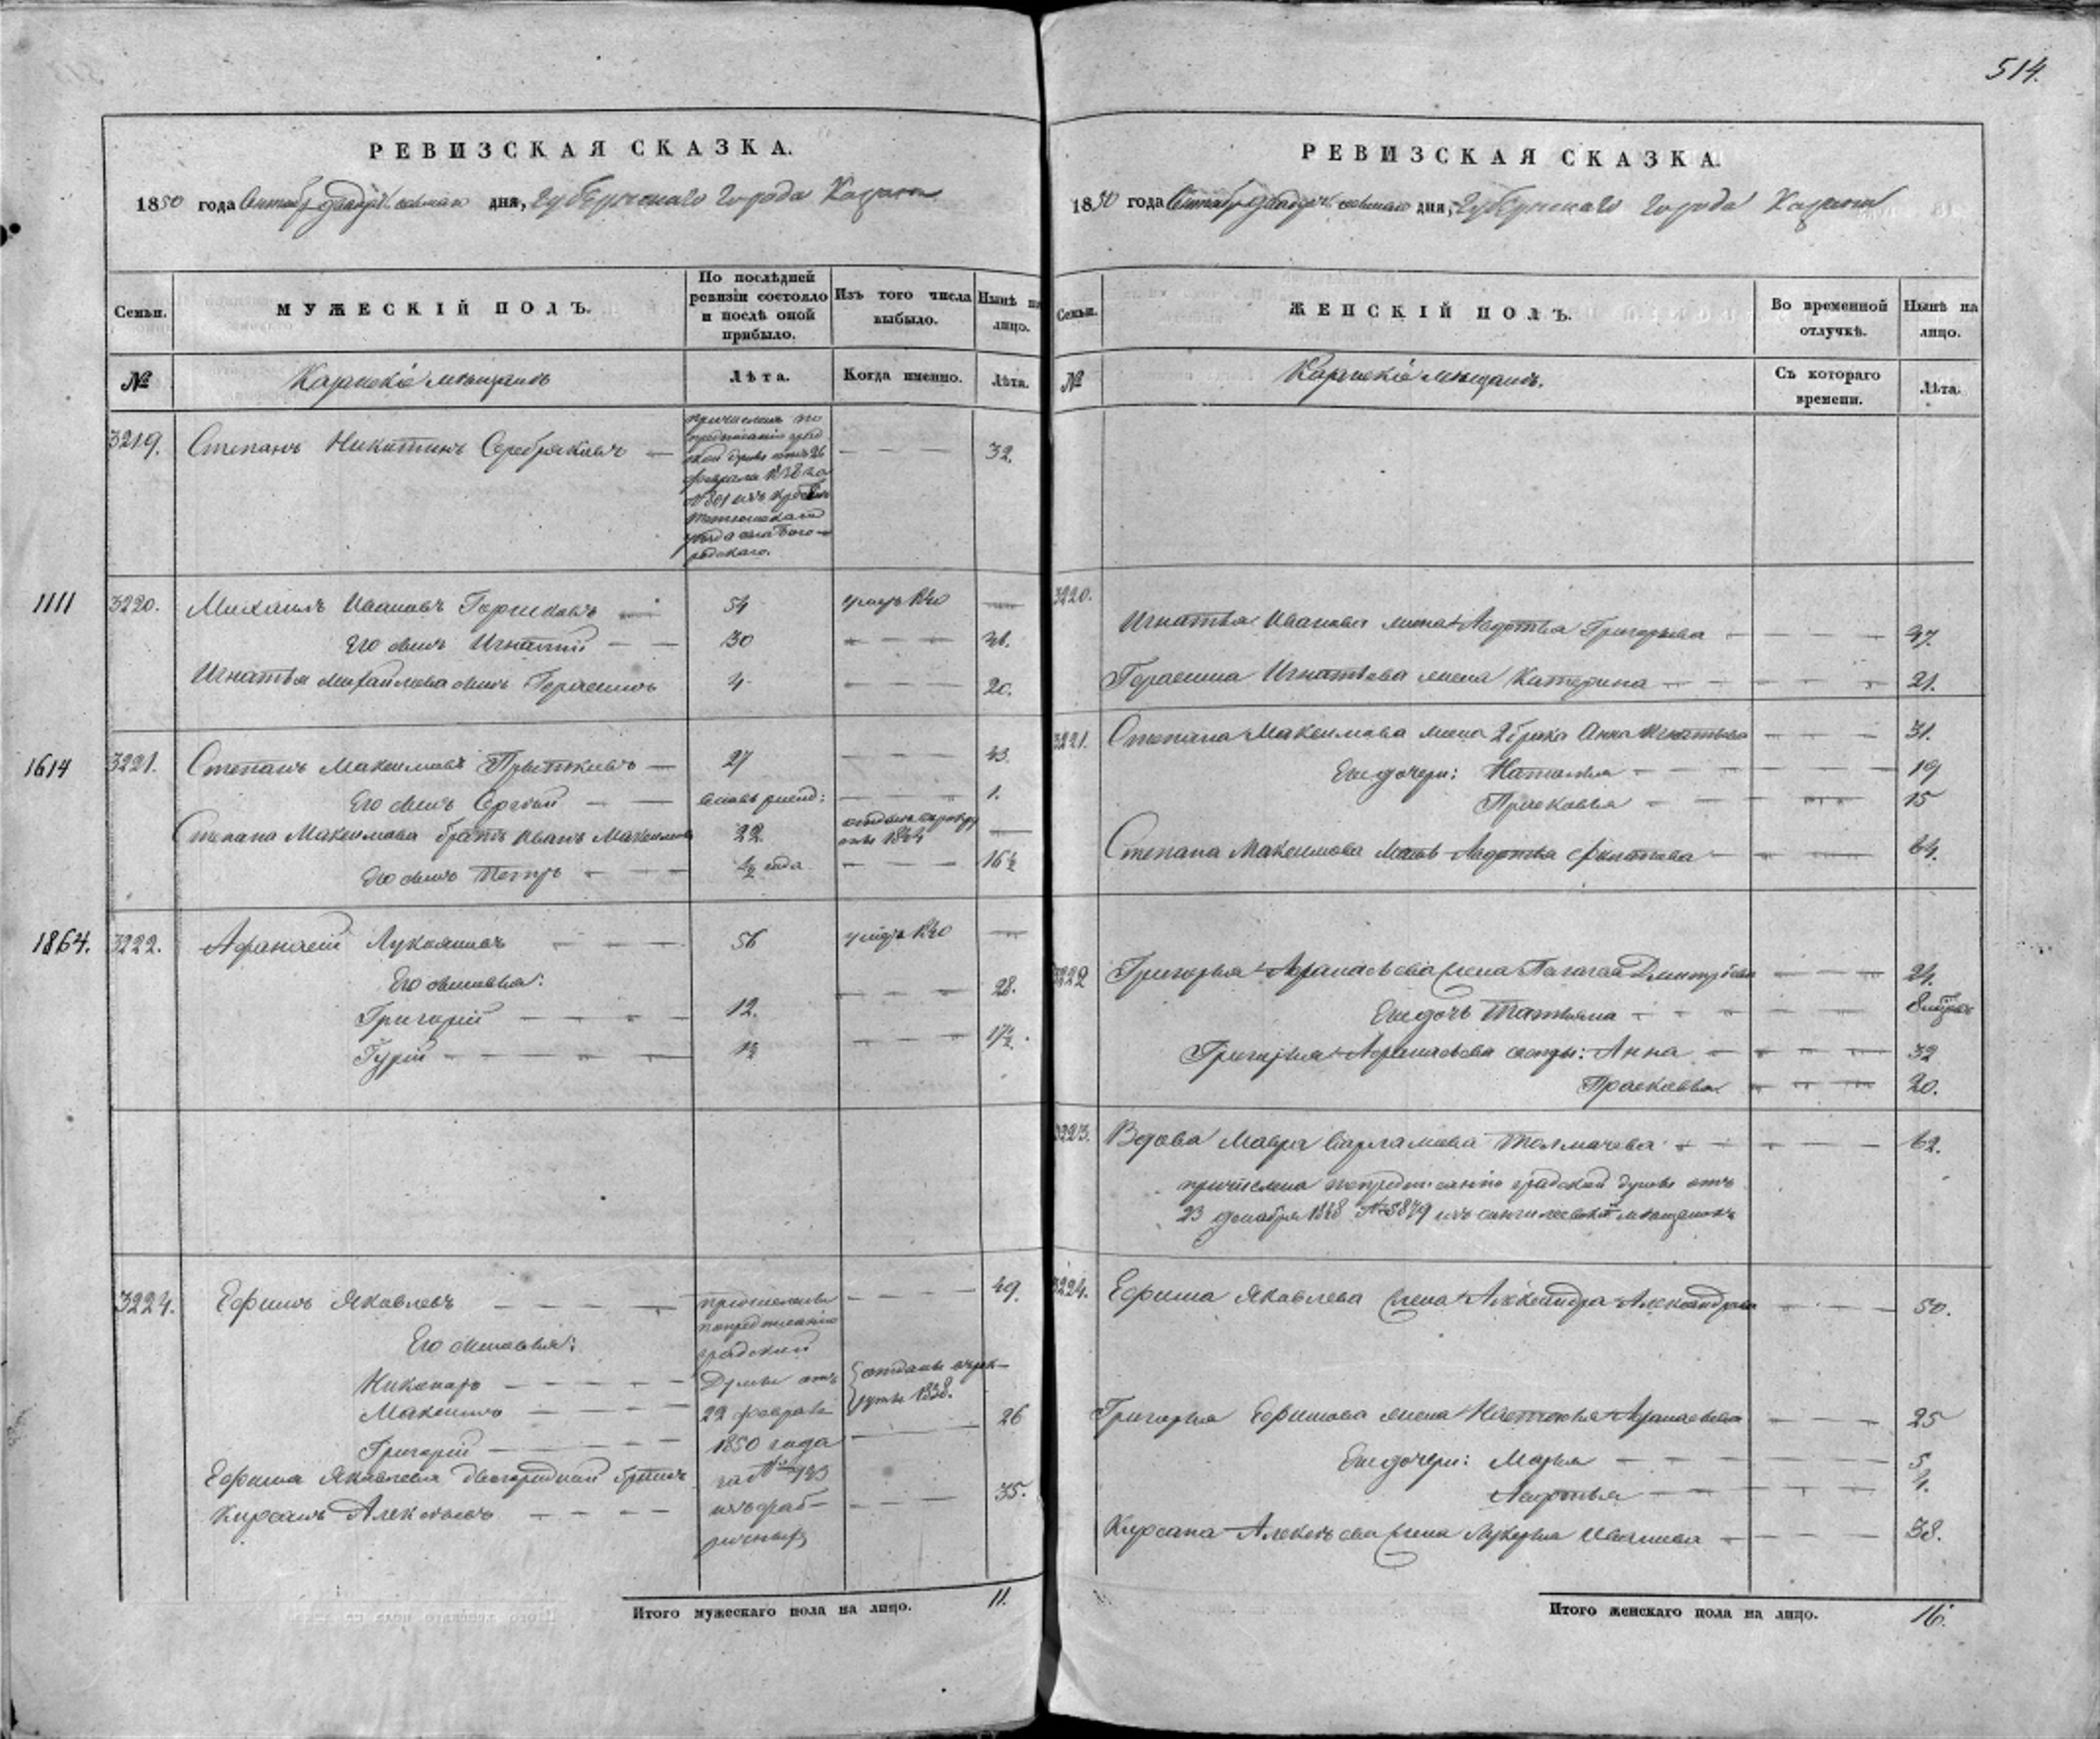 514.
РЕВИЗСКАЯ СКАЗКА.
1850 года Октября двадцать седьмаго дня, Губернскаго города Казани
Семьи.
МУЖЕСКІЙ ПОЛЪ.
По послѣдней ревизіи состояло и послѣ оной прибыло.
Изъ того числа выбыло.
Нынѣ на лицо.
№
Казанскіе мѣщане
Лѣта.
Когда именно.
Лѣта.
3219. Степанъ Никитинъ Серебряковъ — 32.
причисленъ по
предписанію град
ской думы отъ 26
февраля 1838 за
№ 801 изъ
Тетюшскаго
уѣзда села Бого-
родскаго.
1111 3220. Михаилъ Ивановъ Горшковъ 54 умеръ 1840
Его сынъ Игнатій — — 30
Игнатья Михайлова сынъ Герасимъ 4 — — — 20.
1614 3221. Степанъ Максимовъ — 27 — — — 43.
Его сынъ Сергѣй — — вновь рожд: — — — 1.
Степана Максимова братъ Иванъ Максимовъ 22. отданъ въ рекру
ты 1844
Его сынъ Петръ — — — ½ года — — — 16 ½
1864. 3222. Афанасій Лукояновъ — — — 56 умеръ 1840
Его сыновья:
Григорій — — — — 12. — — — 28.
Гурій — — — — 1½ — — — 17½.
3224. Ефимъ Яковлевъ — — — — 49.
Его сыновья:
Никаноръ — — — —
Максимъ — — — —
Григорій — — — — 26
Ефима Яковлева двоюродный братъ
Кирсанъ Алексѣевъ — — — — 35.
причислены
по предписанію
градской
Думы отъ
22 февраля
1850 года
за № 923
изъ фаб-
ричныхъ
отданы въ рек-
руты 1838.
Итого мужескаго пола на лицо. 11.
РЕВИЗСКАЯ СКАЗКА.
1850 года Октября двадцать седьмаго дня, Губернскаго города Казани
Семьи.
ЖЕНСКІЙ ПОЛЪ.
Во временной отлучкѣ.
Нынѣ на лицо.
№
Казанскіе мѣщане.
Съ котораго времени.
Лѣта.
3220.
Игнатья Иванова жена Авдотья Григорьева — — — — 47.
Герасима Игнатьева жена Катерина — — — — 21.
3221. Степана Максимова жена 2 брака Анна Игнатьева — — — 31.
Ея дочери: Наталья — — — — 19
Прасковья — — — — 15
Степана Максимова мать Авдотья Филатова — — — 64.
3222 Григорья Афанасьева жена Пелагея Дмитріева — — — 24.
Ея дочь Татьяна — — — — 8 мѣсяц.
Григорья Афанасьева сестры: Анна — — — — 32
Прасковья — — — — 20.
3223. Вдова Мавра Варламова Толмачева — — — — 62.
причислена по предписанію градской думы отъ
23 декабря 1848 № 5879 изъ мѣщанокъ
3224. Ефима Яковлева жена Александра Александрова — — — 50.
Григорья Ефимова жена Настасья Афанасьева — — — 25
Ея дочери: Марья — — — — 5
Авдотья — — — — 4.
Кирсана Алексѣева жена Лукерья Иванова — — — — 38.
Итого женскаго пола на лицо. 16.